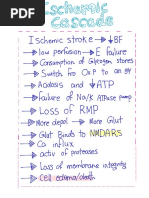 Ischemic
Cascade
Ischemic stroke → ↓BF
→ low perfusion → E failure
→ Consumption of Glycogen stores
→ Switch fro OxP to an gy
→ Acidosis and ↓ATP
→ failure of Na/K ATPase pump
→ Loss of RMP
→ More depol → More Glut
→ Glut Binds to NMDARS
→ Ca influx
→ activ of proteases
→ Loss of membrane integrity
→ Cell edema/death